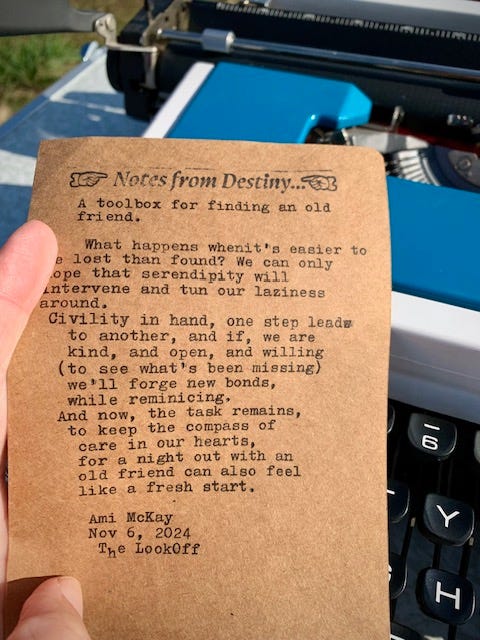 Notes from Destiny...
A toolbox for finding an old
friend.
What happens whenit's easier to
e lost than found? We can only
ope that serendipity will
intervene and tun our laziness
around.
Civility in hand, one step leads
to another, and if, we are
kind, and open, and willing
(to see what's been missing)
we'll forge new bonds,
while reminicing.
And now, the task remains,
to keep the compass of
care in our hearts,
for a night out with an
old friend can also feel
like a fresh start.
Ami McKay
Nov 6, 2024
The LookOff
6
Y
H